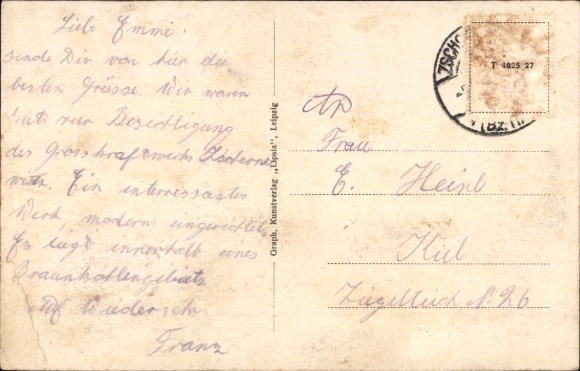 Liebe Emmi!
sende Dir von hier die
besten Grüsse. Wir waren
heute zur Besichtigung
des Grosskraftwerks Zschorne
witz. Ein interressantes
Werk, modern eingerichtet.
Es liegt innerhalb eines
Braunkohlengebiets
auf Wiedersehn
Franz
Graph. Kunstverlag „Lipsia", Leipzig
ZSCHO
(Bz.
T 4025 27
An
Frau
E. Heinl
Kiel
No 26